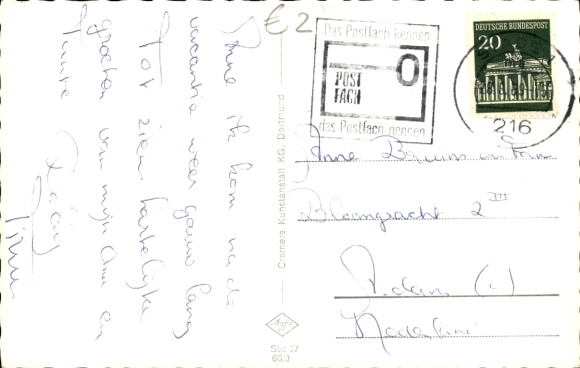 € 2
Anne ik kom na de
vacantie weer gauw langs
Tot ziens hartelijke
groeten van mijn Oma en
Tante
Das Postfach kennen
POST
FACH
das Postfach nennen
DEUTSCHE BUNDESPOST
20
216
Cramers Kunstanstalt KG, Dortmund
Anne Bruins en Fam
Bloemgracht 2 III
A.dam (c)
Nederland
Std 37
66/3